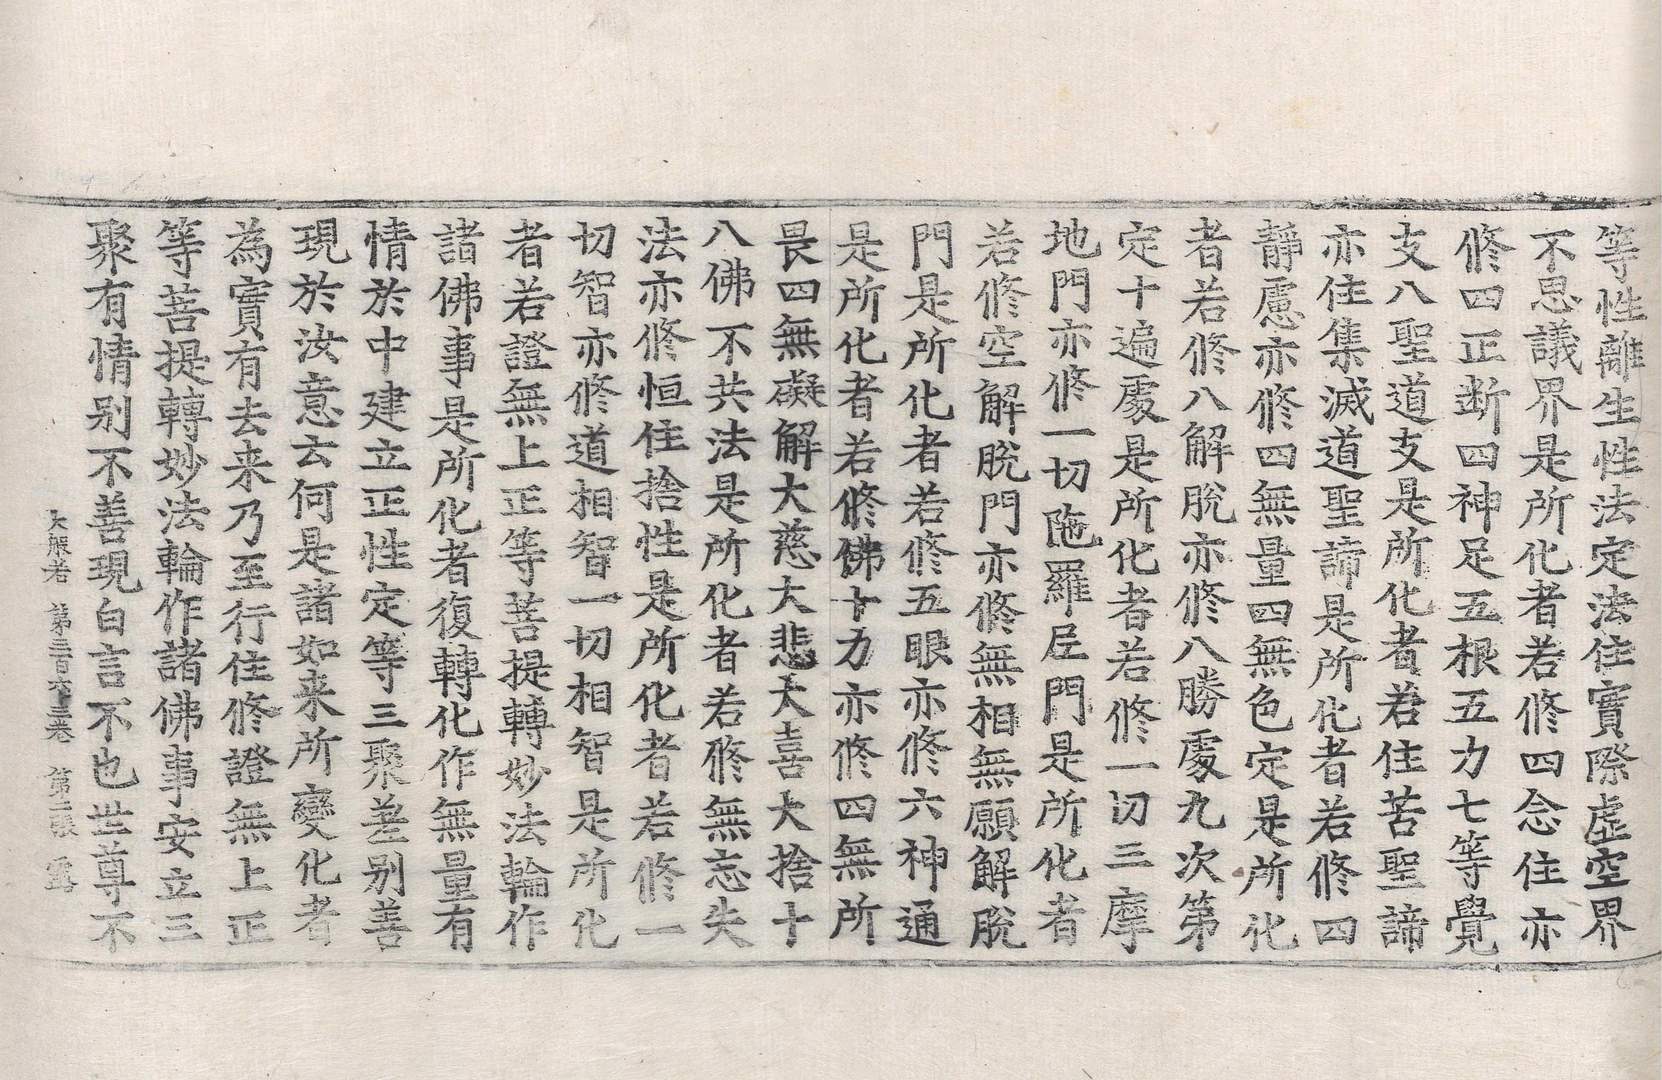 等性離生性法定法住實際虛空界
不思議界是所化者若修四念住亦
修四正断四神足五根五力七等覺
支八聖道支是所化者若住苦聖諦
亦住集滅道聖諦是所化者若修四
靜慮亦修四無量四無色定是所化
者若修八解脫亦修八勝處九次第
定十遍處是所化者若修一切三摩
地門亦修一切陁羅尼門是所化者
若修空解脫門亦修無相無願解脫
門是所化者若修五眼亦修六神通
是所化者若修佛十力亦修四無所
畏四無礙解大慈大悲大喜大捨十
八佛不共法是所化者若修無忘失
法亦修恒住捨性是所化者若修一
切智亦修道相智一切相智是所化
者若證無上正等菩提轉妙法輪作
諸佛事是所化者復轉化作無量有
情於中建立正性定等三聚差别善
現於汝意云何是諸如来所變化者
為實有去来乃至行住修證無上正
等菩提轉妙法輪作諸佛事安立三
聚有情别不善現白言不也世尊不
大般若 第三百六十三卷 第二張